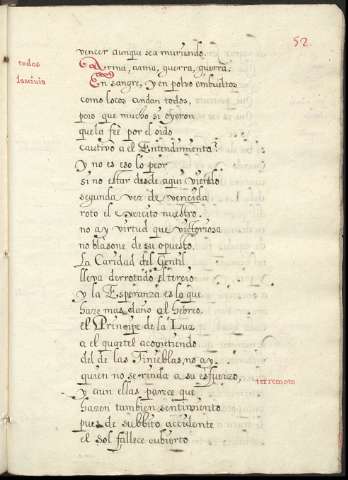 52.
vencer aunque sea muriendo.
todos Arma, arma, guerra, guerra.
lascivia En sangre, y en polvo embueltos
como locos andan todos,
pero que mucho si oyeron
que la feè por el oido
cautivò a el Entendimiento?
Y no es eso lo peor
si no estar desde aqui viendo
segunda vez de vencida
roto el exercito nuestro.
no ay virtud que victoriosa
no blasone de su opuesto.
La Caridad del Gentil
lleva derrotado el tercio
y la Esperanza es la que
haze mas daño al Hebreo.
el Principe de la Luz
a el quartel acometiendo
del de las Tinieblas, no ay
quien no se rinda a su esfuerzo, terremoto
y aun ellas parece que
hazen tambien sentimiento
pues de subbito accidente
el sol fallece cubierto